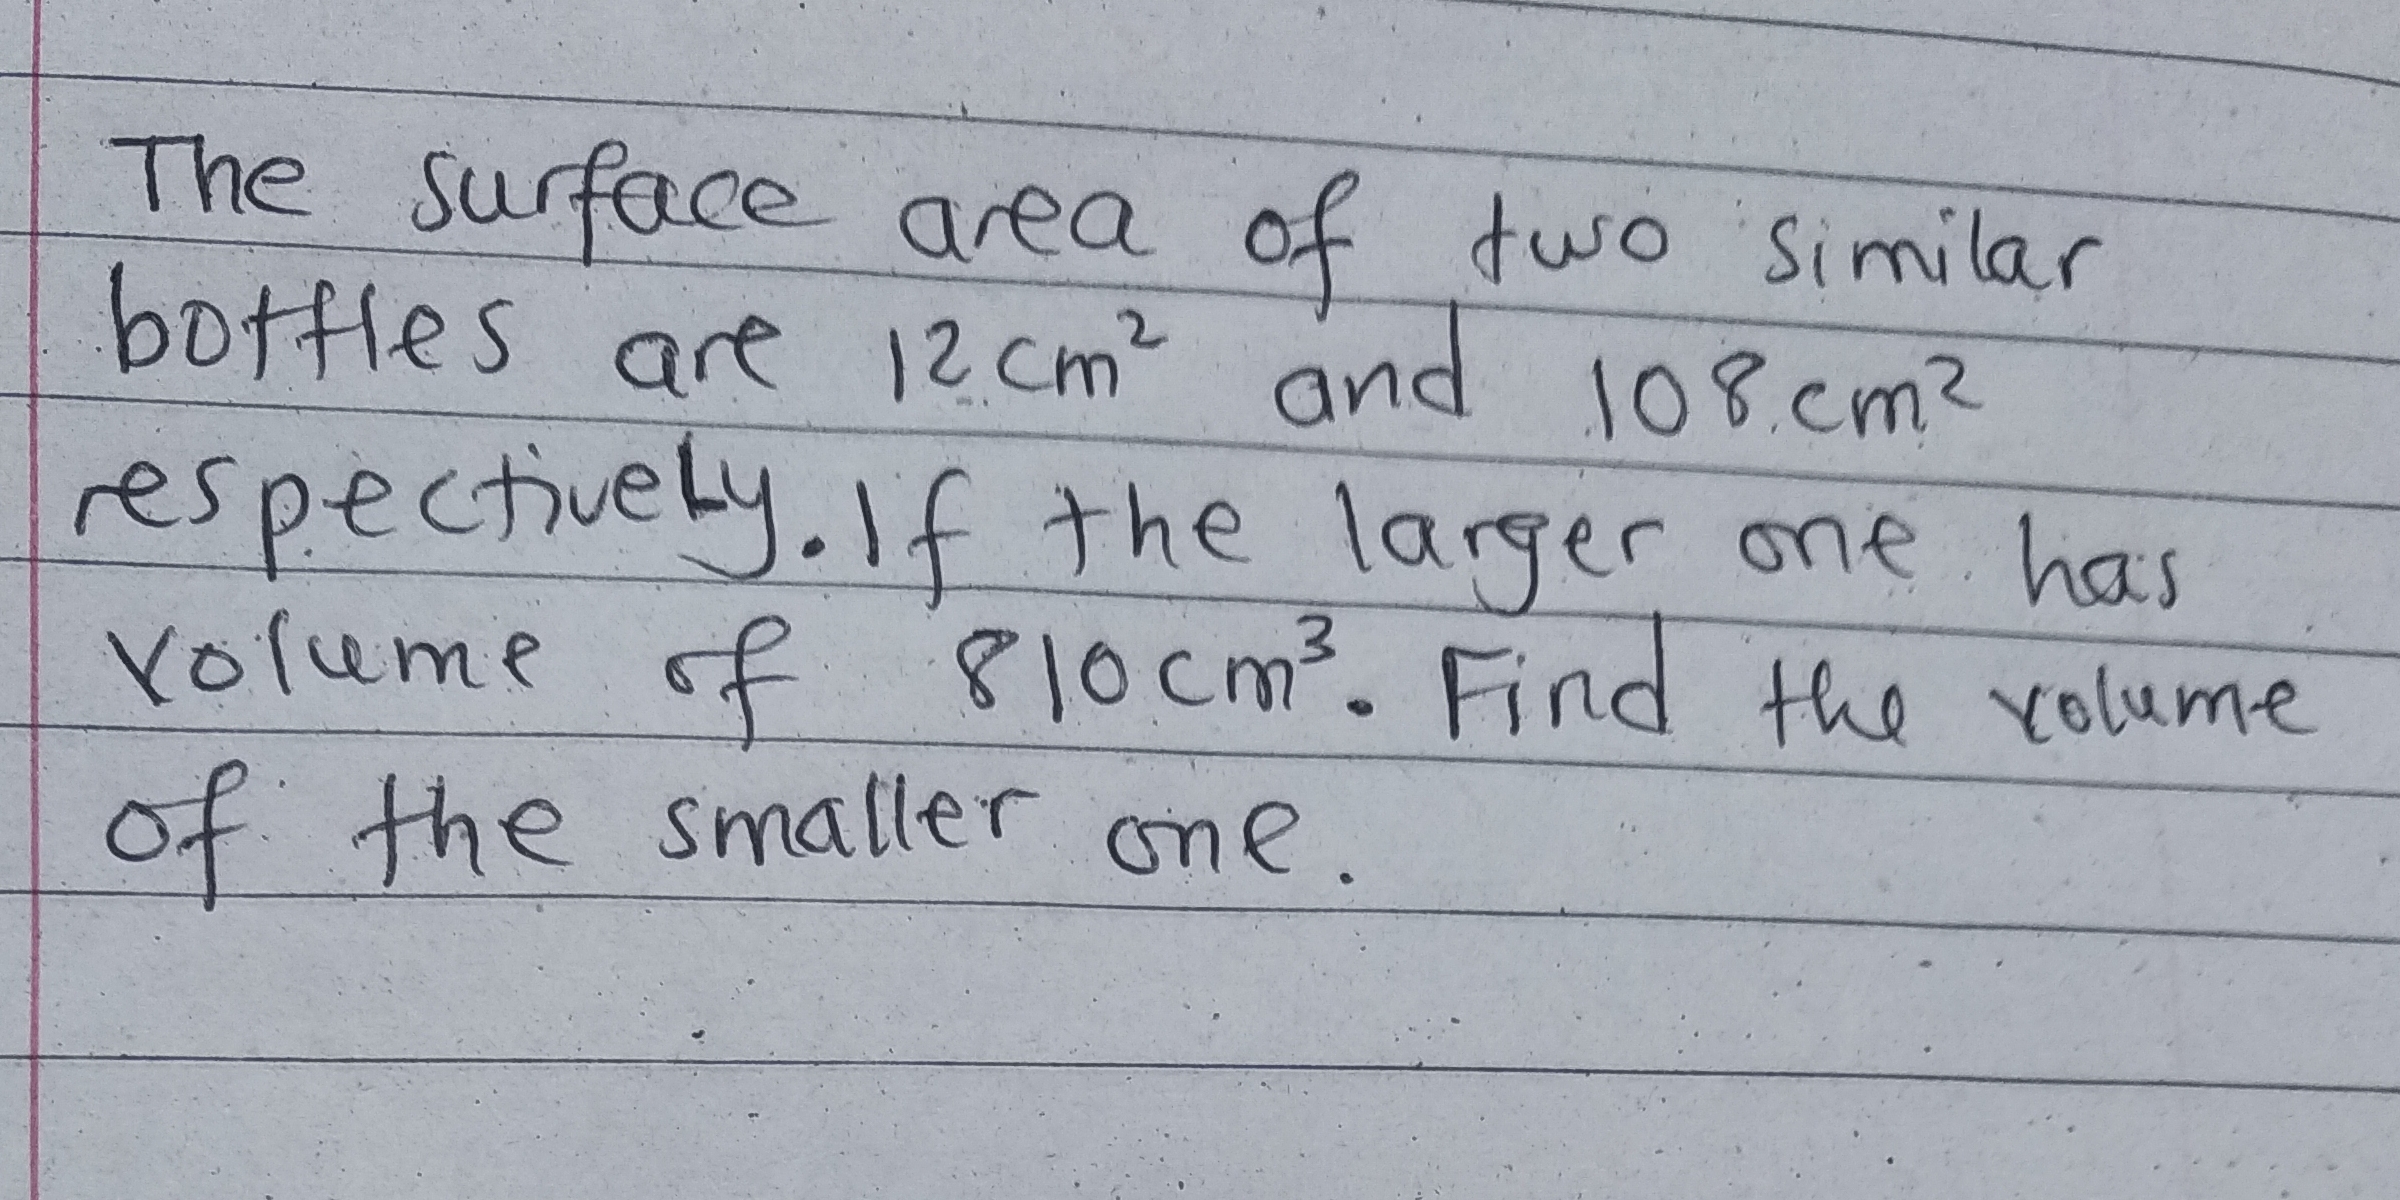 The surface area of two similar
bottles are 12cm² and 108cm²
respectively. If the larger one has
volume of 810cm³. Find the volume
of the smaller one.